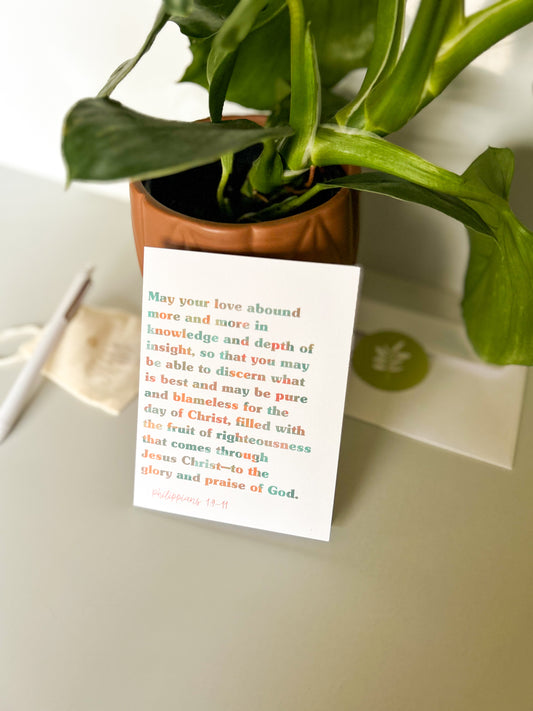 May your love abound
more and more in
knowledge and depth of
insight, so that you may
be able to discern what
is best and may be pure
and blameless for the
day of Christ, filled with
the fruit of righteousness
that comes through
Jesus Christ—to the
glory and praise of God.
Philippians 1:9-11